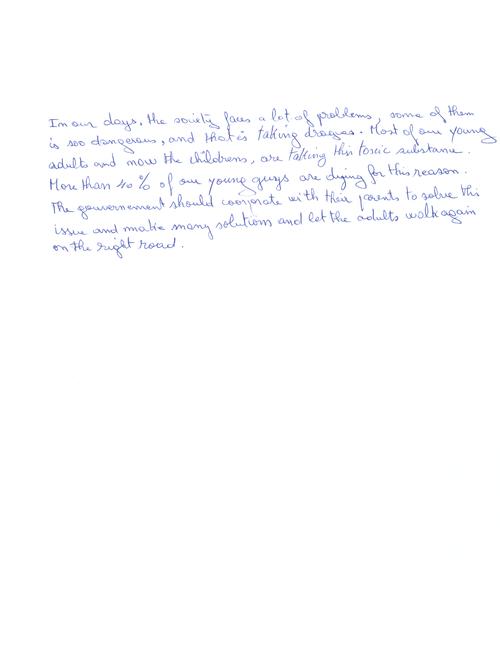 In our days. the society faces a lot of problems, some of them
is soo dangerous, and that is taking drogues. Most of our young
adults and now the childrens, are taking this toxic substance.
More than 40 % of our young guys are dying for this reason.
The gouvernement should cooprate with their parents to solve this
issue and make many solutions and let the adults walk again
on the right road.